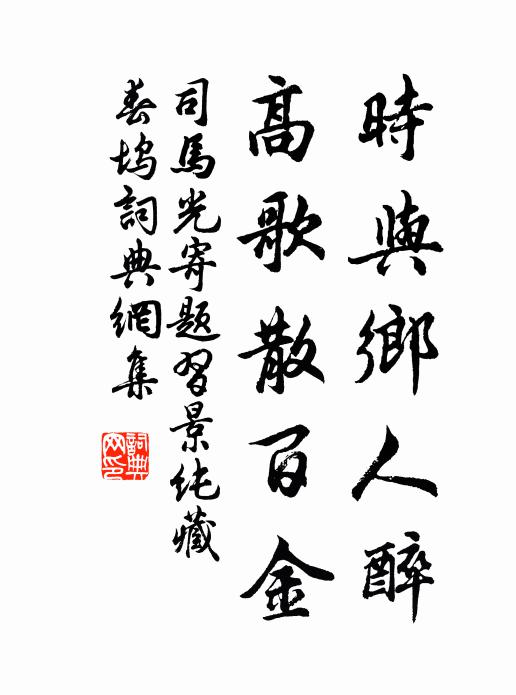 時與鄉人醉
高歌散百金
司馬光寄題習景純藏
春塢詞典網集
詞典網印